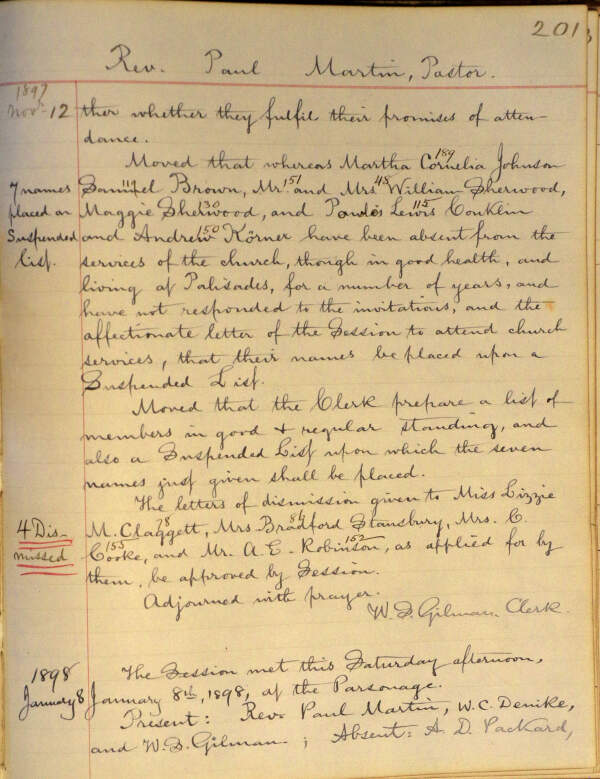 201
Rev. Paul Martin, Pastor.
1897
Nov. 12 ther whether they fulfil their promises of atten-
dance.
189
Moved that whereas Martha Cornelia Johnson
117 151 48
7 names Samuel Brown, Mr. and Mrs William Sherwood,
130 115
placed on Maggie Sherwood, and Lewis Conklin
150
Suspended and Andrew Körner have been absent from the
list. services of the church, though in good health, and
living at Palisades, for a number of years, and
have not responded to the invitations, and the
affectionate letter of the Session to attend church
services, that their names be placed upon a
Suspended List.
Moved that the Clerk prepare a list of
members in good & regular standing, and
also a Suspended List upon which the seven
names just given shall be placed.
The letters of dismission given to Miss Lizzie
78 81
4 Dis- M. Claggett, Mrs Bradford Stansbury, Mrs. C.
155 152
missed Cooke, and Mr. A. E. Robinson, as applied for by
them, be approved by Session.
Adjourned with prayer.
W. S. Gilman. Clerk.
1898 The Session met this Saturday afternoon,
January 8 January 8th, 1898, at the Parsonage.
Present: Rev. Paul Martin, W. C. Denike,
and W. S. Gilman; Absent: A. D. Packard,